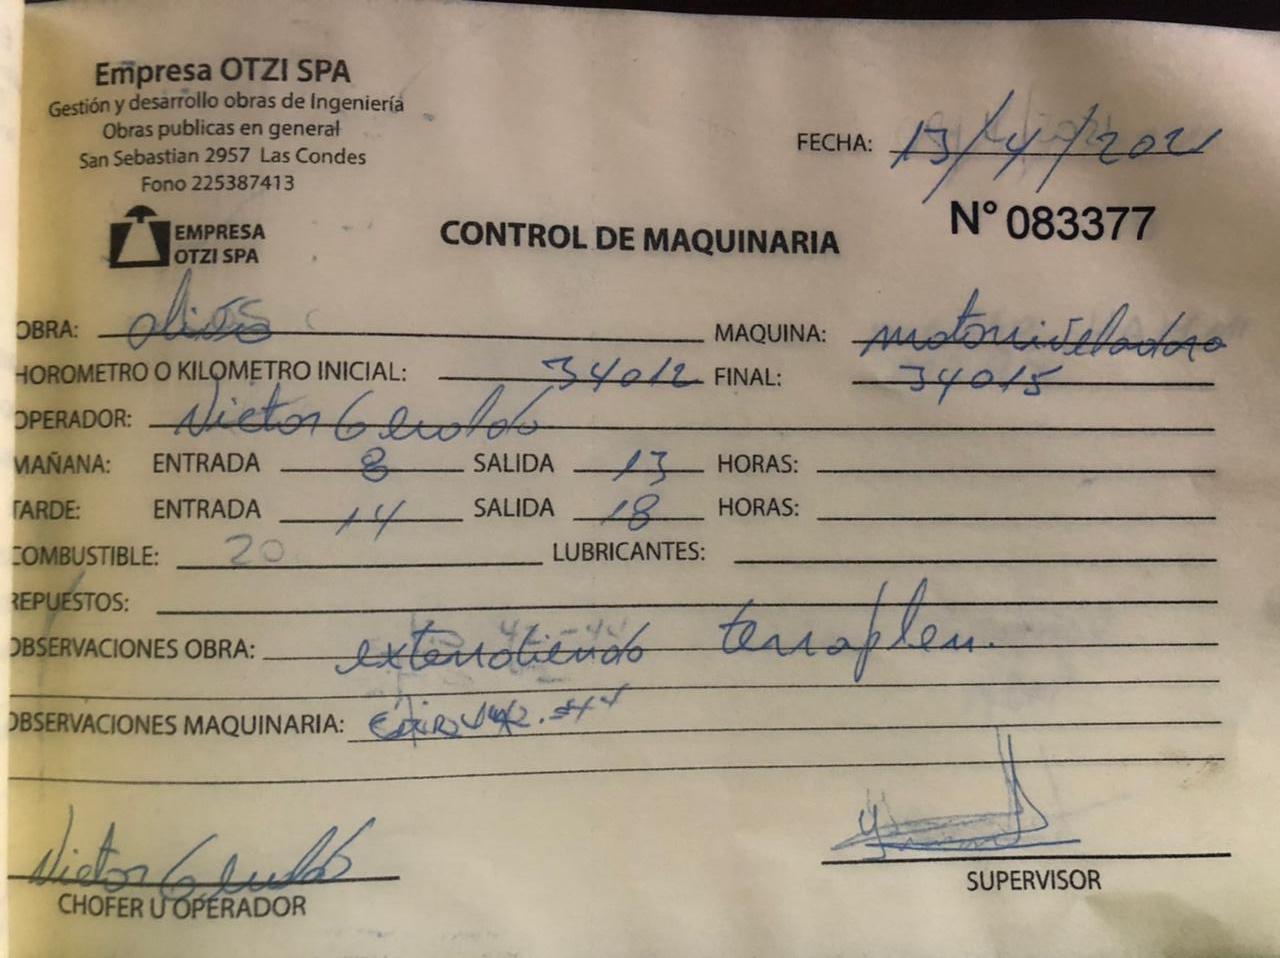 Empresa OTZI SPA
Gestión y desarrollo obras de Ingeniería
Obras publicas en general
San Sebastian 2957 Las Condes
Fono 225387413
FECHA: 13/4/2021
N° 083377
EMPRESA
OTZI SPA
CONTROL DE MAQUINARIA
OBRA: MAQUINA: motoniveladora
HOROMETRO O KILOMETRO INICIAL: 34012 FINAL: 34015
OPERADOR: Victor Geraldo
MAÑANA: ENTRADA 8 SALIDA 13 HORAS:
TARDE: ENTRADA 14 SALIDA 18 HORAS:
COMBUSTIBLE: 20 LUBRICANTES:
REPUESTOS:
OBSERVACIONES OBRA: extendiendo terraplen.
OBSERVACIONES MAQUINARIA:
Victor Geraldo
CHOFER U OPERADOR
SUPERVISOR